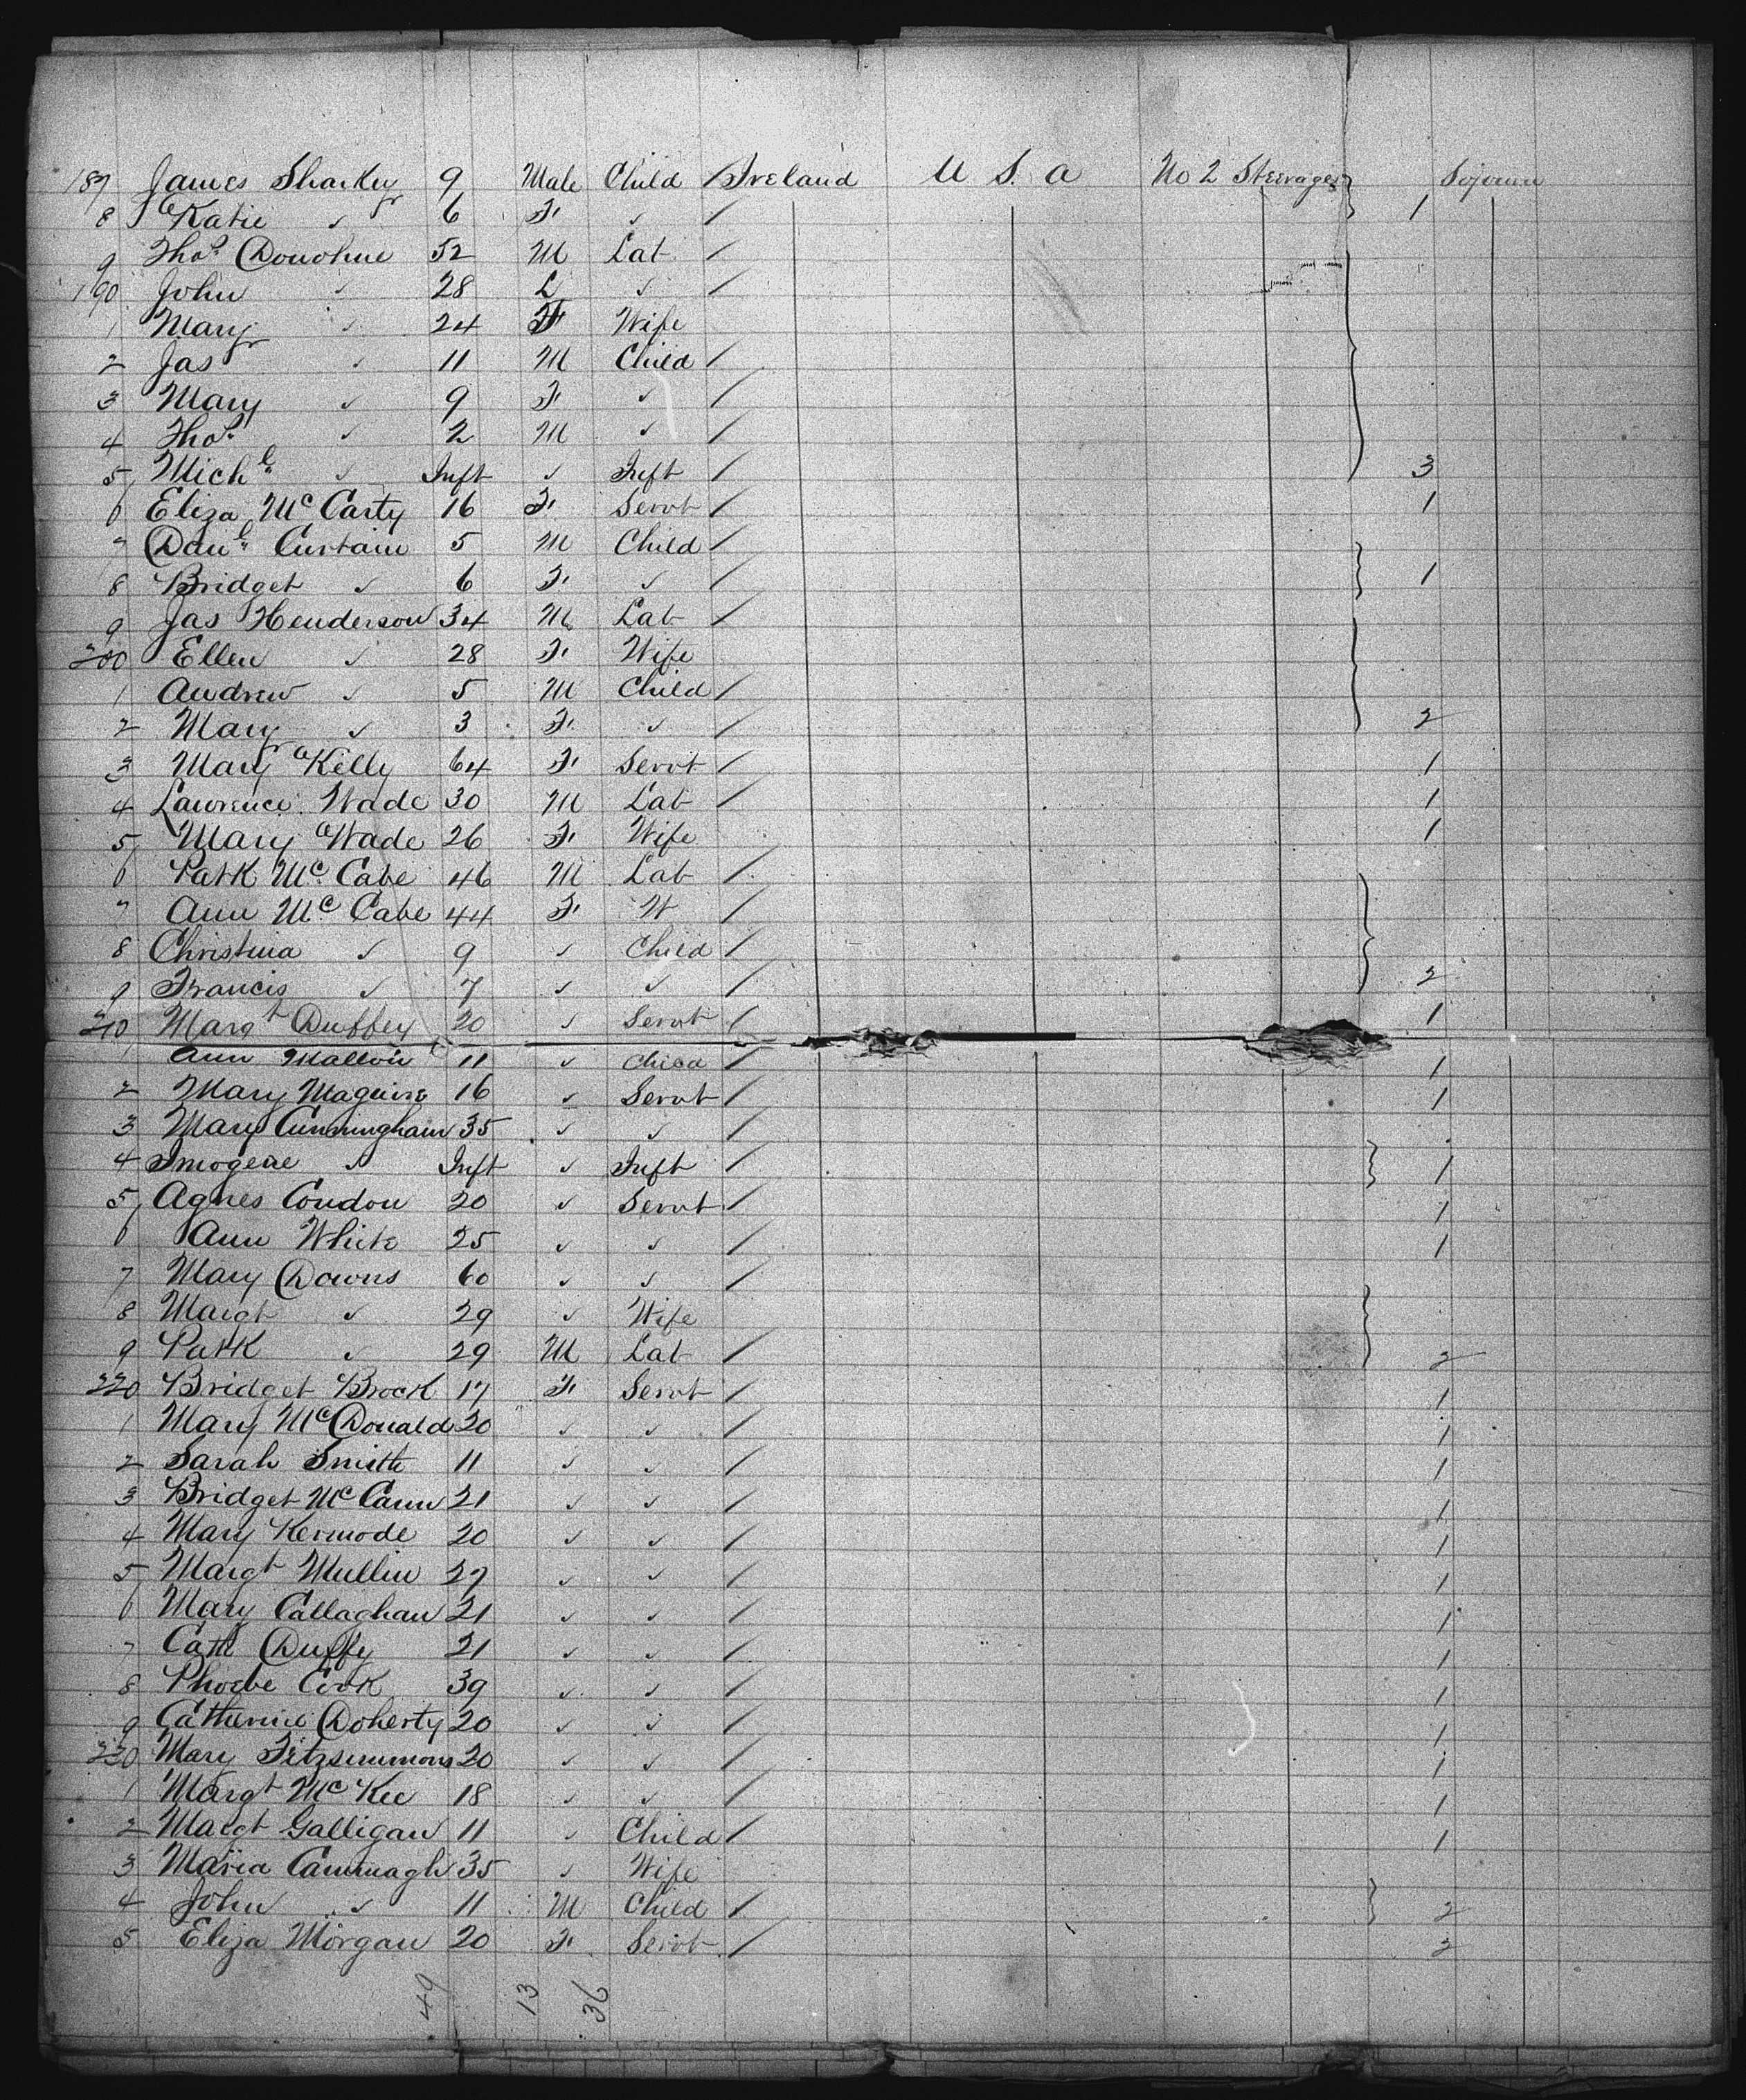 187 James Sharkey 9 Male Child / Ireland U S. a No 2 Steerage } 1 Sojourn
8 Katie ✓ 6 F ✓ /
9 Thos Donohue 52 M Lab /
190 John ✓ 28 L ✓ /
1 Mary ✓ 24 F Wife
2 Jas ✓ 11 M Child /
3 Mary ✓ 9 F ✓ /
4 Thos ✓ 2 M ✓ /
5 Michl ✓ Inft ✓ Inft / 3
6 Eliza McCarty 16 F Servt / 1
7 Danl Curtain 5 M Child /
8 Bridget ✓ 6 F ✓ / 1
9 Jas Henderson 34 M Lab /
200 Ellen ✓ 28 F Wife
1 Andrew ✓ 5 M Child /
2 Mary ✓ 3 F ✓ / 2
3 Mary Kelly 64 F Servt / 1
4 Lawrence Wade 30 M Lab / 1
5 Mary Wade 26 F Wife 1
6 Patk McCabe 46 M Lab /
7 Ann McCabe 44 F W /
8 Christina ✓ 9 ✓ Child /
9 Francis ✓ 7 ✓ ✓ / 2
210 Margt Duffey 20 ✓ Servt / 1
1 Ann 11 ✓ Child / 1
2 Mary Maguire 16 ✓ Servt / 1
3 Mary Cunningham 35 ✓ ✓ /
4 Imogene ✓ Inft ✓ Inft / 1
5 Agnes Condon 20 ✓ Servt / 1
6 Ann White 25 ✓ ✓ / 1
7 Mary Downs 60 ✓ ✓ /
8 Margt ✓ 29 ✓ Wife
9 Patk ✓ 29 M Lab / 2
220 Bridget Brock 17 F Servt / 1
1 Mary McDonald 20 ✓ ✓ / 1
2 Sarah Smith 11 ✓ ✓ / 1
3 Bridget McCann 21 ✓ ✓ / 1
4 Mary Kermode 20 ✓ ✓ / 1
5 Margt Mullin 27 ✓ ✓ / 1
6 Mary Callaghan 21 ✓ ✓ / 1
7 Cath Duffy 21 ✓ ✓ / 1
8 Phoebe Cook 39 ✓ ✓ / 1
9 Catherine Doherty 20 ✓ ✓ / 1
230 Mary Fitzsimmons 20 ✓ ✓ / 1
1 Margt McKee 18 ✓ ✓ / 1
2 Margt Galligan 11 ✓ Child / 1
3 Maria Cammagh 35 ✓ Wife
4 John ✓ 11 M Child / 2
5 Eliza Morgan 20 F Servt / 2
49 13 36